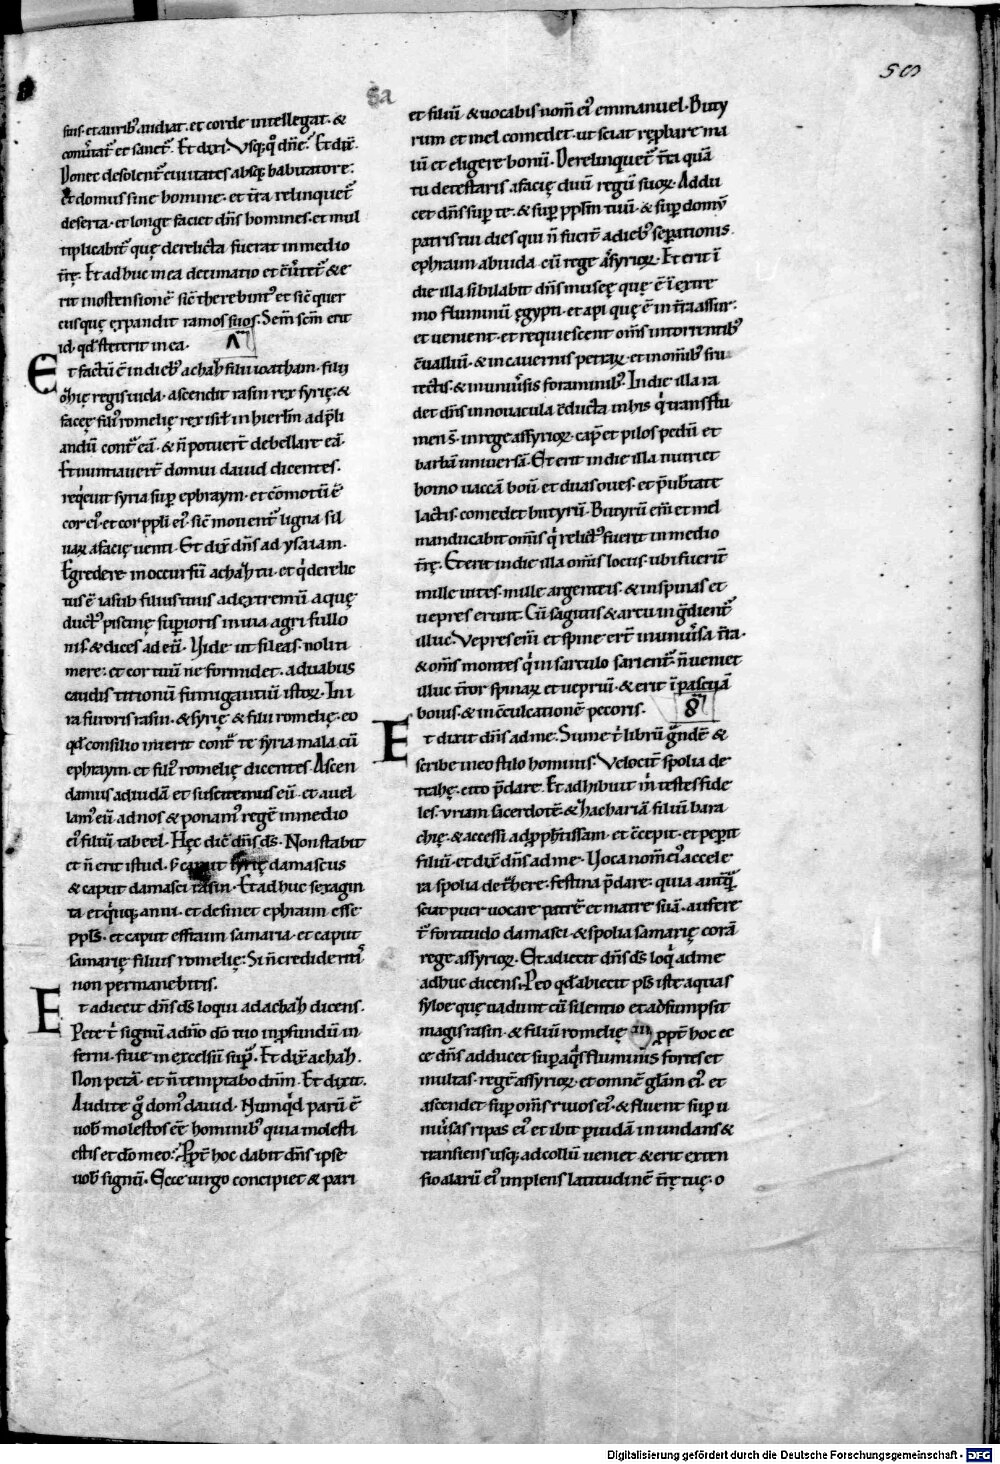 sa
suis. et aurib᷒ audiat. et corde intellegat. &
conu̅tat᷑ et sanet᷑. Et dixi. Vsq; q̊ dn̅e. Et dix̅.
Donec desolent᷑ ciuitates absq; habitatore.
et domus sine homine. et t̅ra relinquet᷑
deserta. et longe faciet dn̅s homines. et mul
tiplicabit᷑ quę derelicta fuerat in medio
t̅rę. Et adhuc in ea decimatio et c̅u̅tet᷑ & e
rit in ostensione̅ sic̅ therebint᷒ et sic̅ quer
cus quę expandit ramos suos. Sem̅ sc̅m erit
id. qd̅ steterit in ea.
VII
Et factu̅ e̅ in dieb᷒ achah filii ioatham. filii
ozię regis iuda. ascendit rasin rex syrię. &
facee filiu᷒ romelię rex isrl̅ in hierl̅m ad p̅li
andu̅ cont᷑ ea̅. & n̅ potuer̅t debellare ea̅.
Et nuntiauer̅t domui dauid dicentes.
req̇euit syria sup̱ ephraym. et co̅motu̅ e̅
cor ei᷒. et cor pp̅li ei᷒. sic̅ mouent᷑ ligna sil
uaꝝ a facię uenti. Et dix̅ dn̅s ad ysaiam.
Egredere in occursu̅ achah tu. et q̇ derelic
tus e̅ iasub filius tuus ad extremu̅ aquę
duct᷒ piscinę sup̱ioris in uia agri fullo
nis. & dices ad eu̅. Uide ut sileas. noli ti
mere: et cor tuu̅ ne formidet. a duabus
caudis titionu̅ fumigantiu̅ istoꝝ. In i
ra furoris rasin. & syrię & filii romelię. eo
qd̅ consilio inierit cont᷑ te syria mala cu̅
ephraym. et fili᷒ romelię dicentes. Ascen
damus ad iuda̅ et suscitemus eu̅. et auel
lam᷒ eu̅ ad nos & ponam᷒ rege̅ in medio
ei᷒ filiu̅ tabeel. Hęc dic̅ dn̅s ds̅. Non stabit
et n̅ erit istud. s; caput syrię damascus
& caput damasci rasin. Et adhuc sexagin
ta et q̇nq; anni. et desinet ephraim esse
ppl̅s. et caput effraim samaria. et caput
samarię filius romelię: Si n̅ credideritis
non permanebitis.
Et adiecit dn̅s ds̅ loqui ad achah dicens.
Pete t̅ signu̅ a dn̅o do̅ tuo in p̱fundu̅ in
ferni. siue in excelsu̅ sup̱᷑. Et dix̅ achah.
Non peta̅. et n̅ temptabo dn̅m. Et dixit.
Audite g̊ dom᷒ dauid. Numq̇d paru̅ e̅
uob̅ molestos ee̅ hominib᷒ quia molesti
estis et do̅ meo: Propt̅ hoc dabit dn̅s ipse
uob̅ signu̅. Ecce uirgo concipiet & pari
et filiu̅ & uocabis nom̅ ei᷒ emmanuel. Buty
rum et mel comedet. ut sciat rep̱bare ma
lu̅ et eligere bonu̅. Derelinquet᷑ t̅ra qua̅
tu detestaris a facię duu̅ regu̅ suoꝝ. Addu
cet dn̅s sup̱ te. & sup̱ ppl̅m tuu̅. & sup̱ domu̅
patris tui dies qui n̅ fuer̅t a dieb᷒ sep̱ationis
ephraim a biuda cu̅ rege assyrioꝝ. Et erit i̅
die illa sibilabit dn̅s muscę quę e̅ i̅ extre
mo fluminu̅ ęgypti. et api quę e̅ in t̅ra assur.
et uenient. et requiescent om̅s in torrentib᷒
c̅ualliu̅. & in cauernis petraꝝ. et in om̅ib᷒ fru
tectis. & in uniu̅sis foraminib᷒. In die illa ra
det dn̅s in nouacula c̅ducta in his q̇ trans flu
men s̅. in rege assyrioꝝ. cap̱ et pilos pedu̅ et
barba̅ uniuersa̅. Et erit in die illa nutriet
homo uacca̅ bou̅ et duas oues. et p̅ ub̅tate
lactis. comedet butyru̅. Butyru̅ em̅ et mel
manducabit om̅is q̇ relict᷒ fuerit in medio
t̅rę. Et erit in die illa om̅is locus ubi fueri̅t
mille uites. mille argenteis. & in spinas et
uepres erunt. Cu̅ sagittis & arcu ingdient᷑
illuc. Vepres em̅ et spine er̅t in uniu̅sa t̅ra.
& om̅s montes q̇ in sarculo sarient᷑. n̅ ueniet
illuc t̅ror spinaꝝ et uepriu̅. & erit i̅ pascua̅
bouis. & in c̅culcatione̅ pecoris.
8
Et dixit dn̅s ad me. Sume t̅ libru̅ grande̅ &
scribe in eo stilo hominis. Velocit̅ spolia de
trahe. cito p̅dare. Et adhibui m̅ testes fide
les. uriam sacerdote̅ & zacharia̅ filiu̅ bara
chię. & accessi ad pph̅tissam. et c̅cepit. et pep̱it
filiu̅. et dix̅ dn̅s ad me. Uoca nom̅ ei᷒ accele
ra spolia det̅here. festina p̅dare. quia antq̅
sciat puer uocare patre̅ et matre̅ sua̅. aufere
t᷑ fortitudo damasci. & spolia samarię cora̅
rege assyrioꝝ. Et adiecit dn̅s ds̅ loq̇ ad me
adhuc dicens. Pro eo qd̅ abiecit ppl̅s iste aquas
syloe quę uadunt cu̅ silentio et adsumpsit
magis rasin. & filiu̅ romelię. p̱pt̅ hoc ec
ce dn̅s adducet sup̱ aq̇s fluminis fortes et
multas. rege̅ assyrioꝝ. et omne̅ gl̅am ei᷒. et
ascendet sup̱ om̅s riuos ei᷒. & fluent sup̱ u
niu̅sas ripas ei᷒ et ibit p̱ iuda̅ inundans &
transiens usq; ad collu̅ ueniet & erit exten
sio alaru̅ ei᷒ implens latitudine̅ t̅rę tuę. o
Digitalisierung gefördert durch die Deutsche Forschungsgemeinschaft - DFG